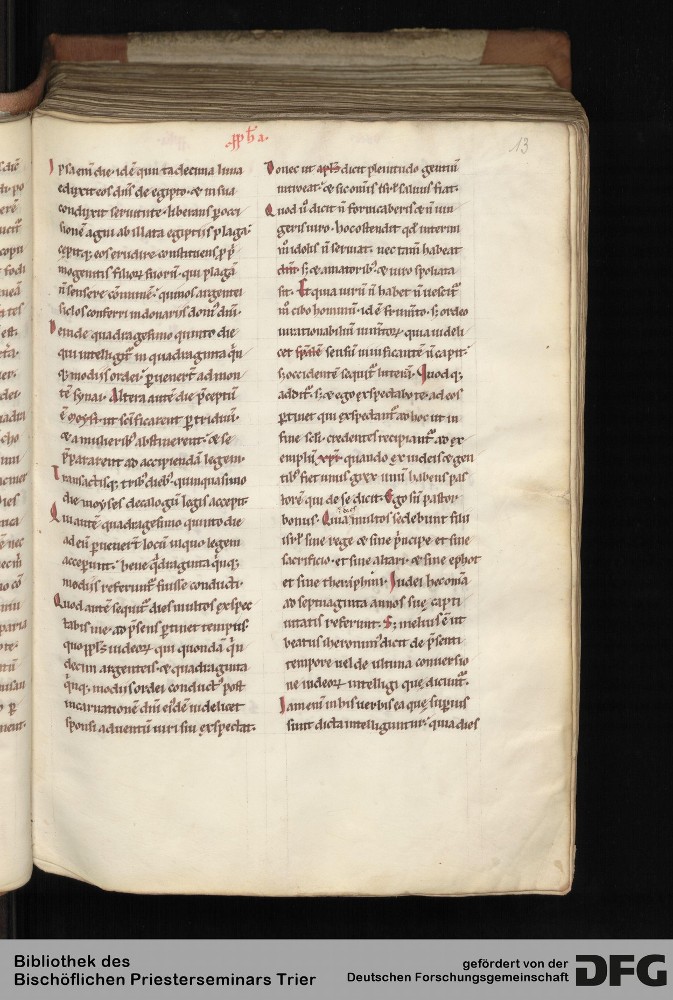 ·pph̄a·
13
Ipsa eni̅ die· id e̅ quinta decima luna
eduxit eos dn̅s de egipto· & in sua
condixit seruitute· liberans p̱ occi
sione̅ agni ab illata egiptiis plaga·
cepitq; eos erudire· constituens p̱ p̱
mogenitis filiorꝝ suorū· qui plaga̅
n̅ sensere co̅mune̅· quinos argenti
siclos conferri in donariis domꝰ dn̅i·
Deinde quadragesimo quinto die
qui intelligit᷑ in quadraginta q̇n
q; modiis ordei· p̱uenert̅ ad mon
te̅ synai· Altera aute̅ die p̱ceptu̅
e̅ moysi· ut sc̅ificarent᷑ p̱ triduu̅·
& a mulierib; abstinerent· & se
p̱pararent ad accipienda̅ legem·
Transactisq; trib; dieb; quinquagesimo
die moyses decalogu̅ legis accepit
Qui aute̅ quadragesimo quinto die
ad eu̅ p̱uenert̅ locu̅ in quo legem
acceperunt· bene q̇draginta q̇nq;
modiis referunt᷑ fuisse conducti·
Quod aute̅ sequit᷑ dies multos exspec
tabis me· ad p̱sens p̱tinet tempus
quo ppl̅s iudeorꝝ qui quonda̅ q̇n
decim argenteis· & quadraginta
q̇nq; modiis ordei conductꝰ post
incarnatione̅ dn̅i eide̅ uidelicet
sponsi aduentu̅ uiri sui exspectat·
Donec ut apl̅s dicit plenitudo gentiu̅
introeat· & sic omnis isrl̅ saluus fiat·
Quod u̅ dicit n̅ fornicaberis & n̅ iun
geris uiro· hoc ostendit qd̅ interim
nu̅ idolis n̅ seruiat· nec tam̅ habeat
dn̅m· s; & amatorib; & uiro spoliata
sit· Et quia uiru̅ n̅ habet n̅ uescit᷑
nu̅ cibo hominu̅· id e̅ frum̅to· s; ordeo
irrationabiliu̅ iu̅m̅torꝝ· quia uideli
cet sp̅ale̅ sensu̅ uiuificante̅ n̅ capit·
s; occidente̅ sequit᷑ litera̅· Quodq;
addit᷑· s; & ego exspectabo te· ad eos
p̱tinet qui exspectant᷑ ad hoc ut in
fine sc̅li· credentes recipiant᷑ ad ex
emplu̅ xpi̅· quando ex iudeis & gen
tib; fiet unus grex unu̅ habens pas
tore̅ qui de se dicit· Ego su̅ pastor
bonus· Quia dies multos sedebunt filii
isrl̅ sine rege & sine p̱ncipe et sine
sacrificio· et sine altari· & sine ephot
et sine theraphim· Iudei hec om̅a
ad septuaginta annos sue̜ capti
uitatis referunt· S; melius e̅ ut
beatus iheronim̅ dicit de p̱senti
tempore uel de ultima conuersio
ne iudeorꝝ intelligi que̜ dicunt᷑·
Iam eni̅ in his uerbis ea que̜ superius
sunt dicta intelliguntur· quia dies
Bibliothek des
Bischöflichen Priesterseminars Trier
gefördert von der
Deutschen Forschungsgemeinschaft
DFG